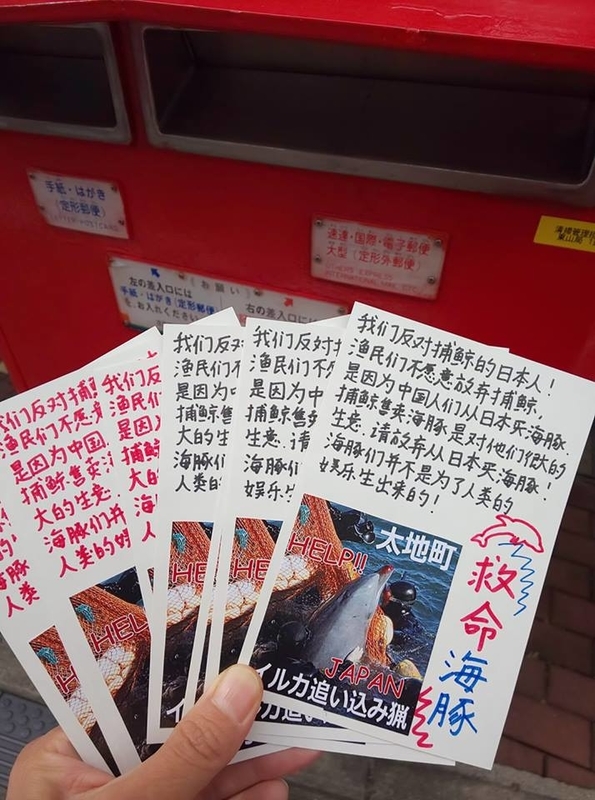 手紙・はがき
(定形郵便)
LETTER・POSTCARD
速達・国際・電子郵便
大型(定形外郵便)
《お願い》
左の差入口には
手紙・はがき(定形郵便)
を、お入れください
右の差入口
我们反对捕鲸的日本人！
渔民们不愿意放弃捕鲸，
是因为中国人们从日本买海豚.
捕鲸售卖海豚是对他们很大的
生意.请放弃从日本买海豚！
海豚们并不是为了人类的
娱乐生出来的！
太地町
HELP!!
JAPAN
イルカ追い込み猟
救命
海豚
我们反对
渔民们不
是因为
捕鲸售
大的生
海豚们
人类的
HE
我们反对
渔民们不愿
是因为中
捕鲸售卖
生意.请
海豚们
娱乐生
HE
我们反
渔民们
是因为
捕鲸
大的
海豚
人类的
HEL
我们反对捕
渔民们不愿意
是因为中国
捕鲸售卖
大的生意.
海豚们并
人类的娱